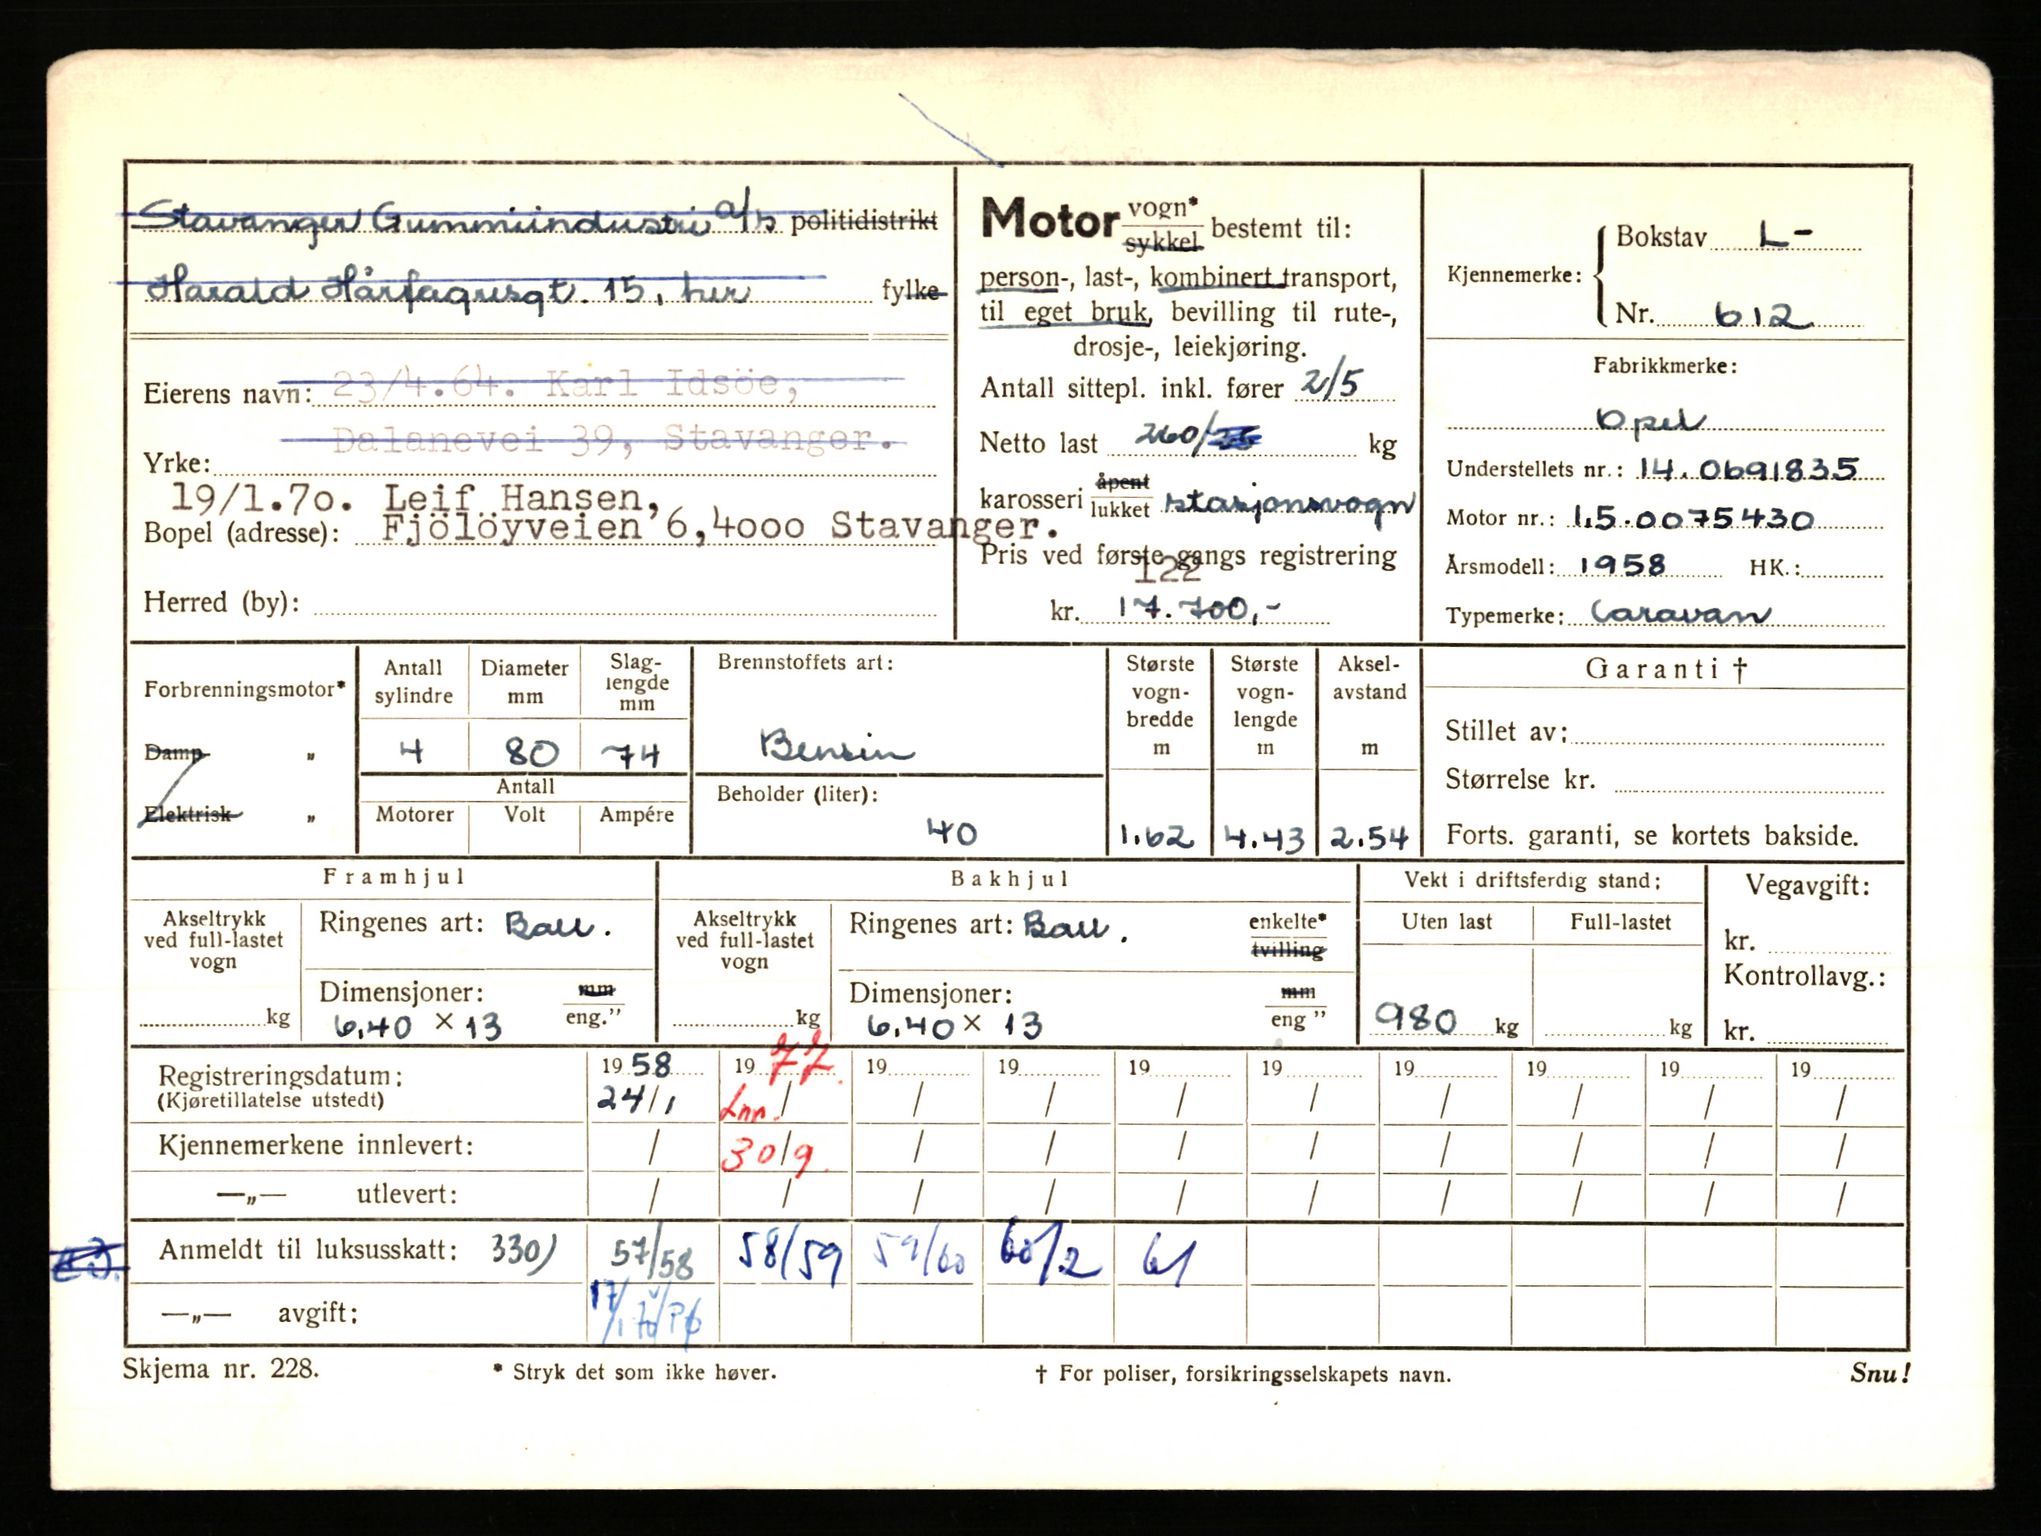 Stavanger Gummiindustri a/s politidistrikt
Harald Hårfagresgt. 15, her fylke
Eierens navn: 23/4.64. Karl Idsöe,
Dalanevei 39, Stavanger.
Yrke:
19/1.70. Leif Hansen,
Bopel (adresse): Fjölöyveien 6, 4000 Stavanger.
Herred (by):
Motor vogn* / sykkel bestemt til:
person-, last-, kombinert transport,
til eget bruk, bevilling til rute-,
drosje-, leiekjøring.
Antall sittepl. inkl. fører 2/5
Netto last 260/ kg
karosseri åpent / lukket stasjonsvogn
Pris ved første gangs registrering
122
kr. 17.700,-
Kjennemerke: Bokstav L-
Nr. 612
Fabrikkmerke:
Opel
Understellets nr.: 14.0691835
Motor nr.: 1,5-0075430
Årsmodell: 1958 HK.:
Typemerke: Caravan
Forbrenningsmotor*
Damp "
Elektrisk "
Antall sylindre 4
Diameter mm 80
Slag-lengde mm 74
Antall
Motorer Volt Ampére
Brennstoffets art:
Bensin
Beholder (liter):
40
Største vogn-bredde m 1.62
Største vogn-lengde m 4.43
Aksel-avstand m 2.54
Garanti †
Stillet av:
Størrelse kr.
Forts. garanti, se kortets bakside.
Framhjul
Akseltrykk ved full-lastet vogn kg
Ringenes art: Ball.
Dimensjoner: mm / eng."
6.40 x 13
Bakhjul
Akseltrykk ved full-lastet vogn kg
Ringenes art: Ball. enkelte* / tvilling
Dimensjoner: mm / eng "
6.40 x 13
Vekt i driftsferdig stand:
Uten last Full-lastet
980 kg kg
Vegavgift:
kr.
Kontrollavg.:
kr.
Registreringsdatum: 19 58 19 77. 19 19 19 19 19 19 19 19
(Kjøretillatelse utstedt) 24/1 Inn. / / / / / / / / /
Kjennemerkene innlevert: / 30/9. / / / / / / / /
—„— utlevert: / / / / / / / / / /
Anmeldt til luksusskatt: 330) 57/58 58/59 59/60 60/2 61
—„— avgift: 17/1
Skjema nr. 228. * Stryk det som ikke høver. † For poliser, forsikringsselskapets navn. Snu!